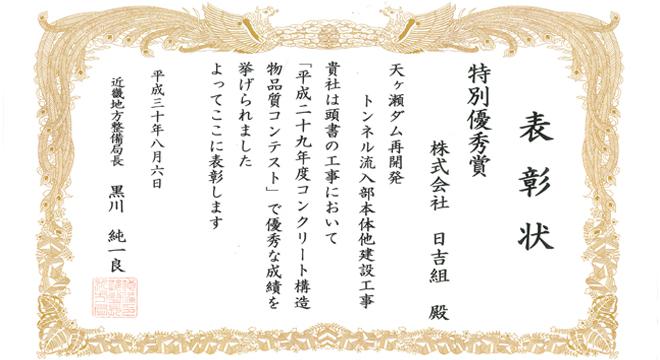 表彰状
株式会社 日吉組 殿
特別優秀賞
天ヶ瀬ダム再開発
トンネル流入部本体他建設工事
貴社は頭書の工事において
「平成二十九年度コンクリート構造
物品質コンテスト」で優秀な成績を
挙げられました
よってここに表彰します
平成三十年八月六日
近畿地方整備局長 黒川 純一良